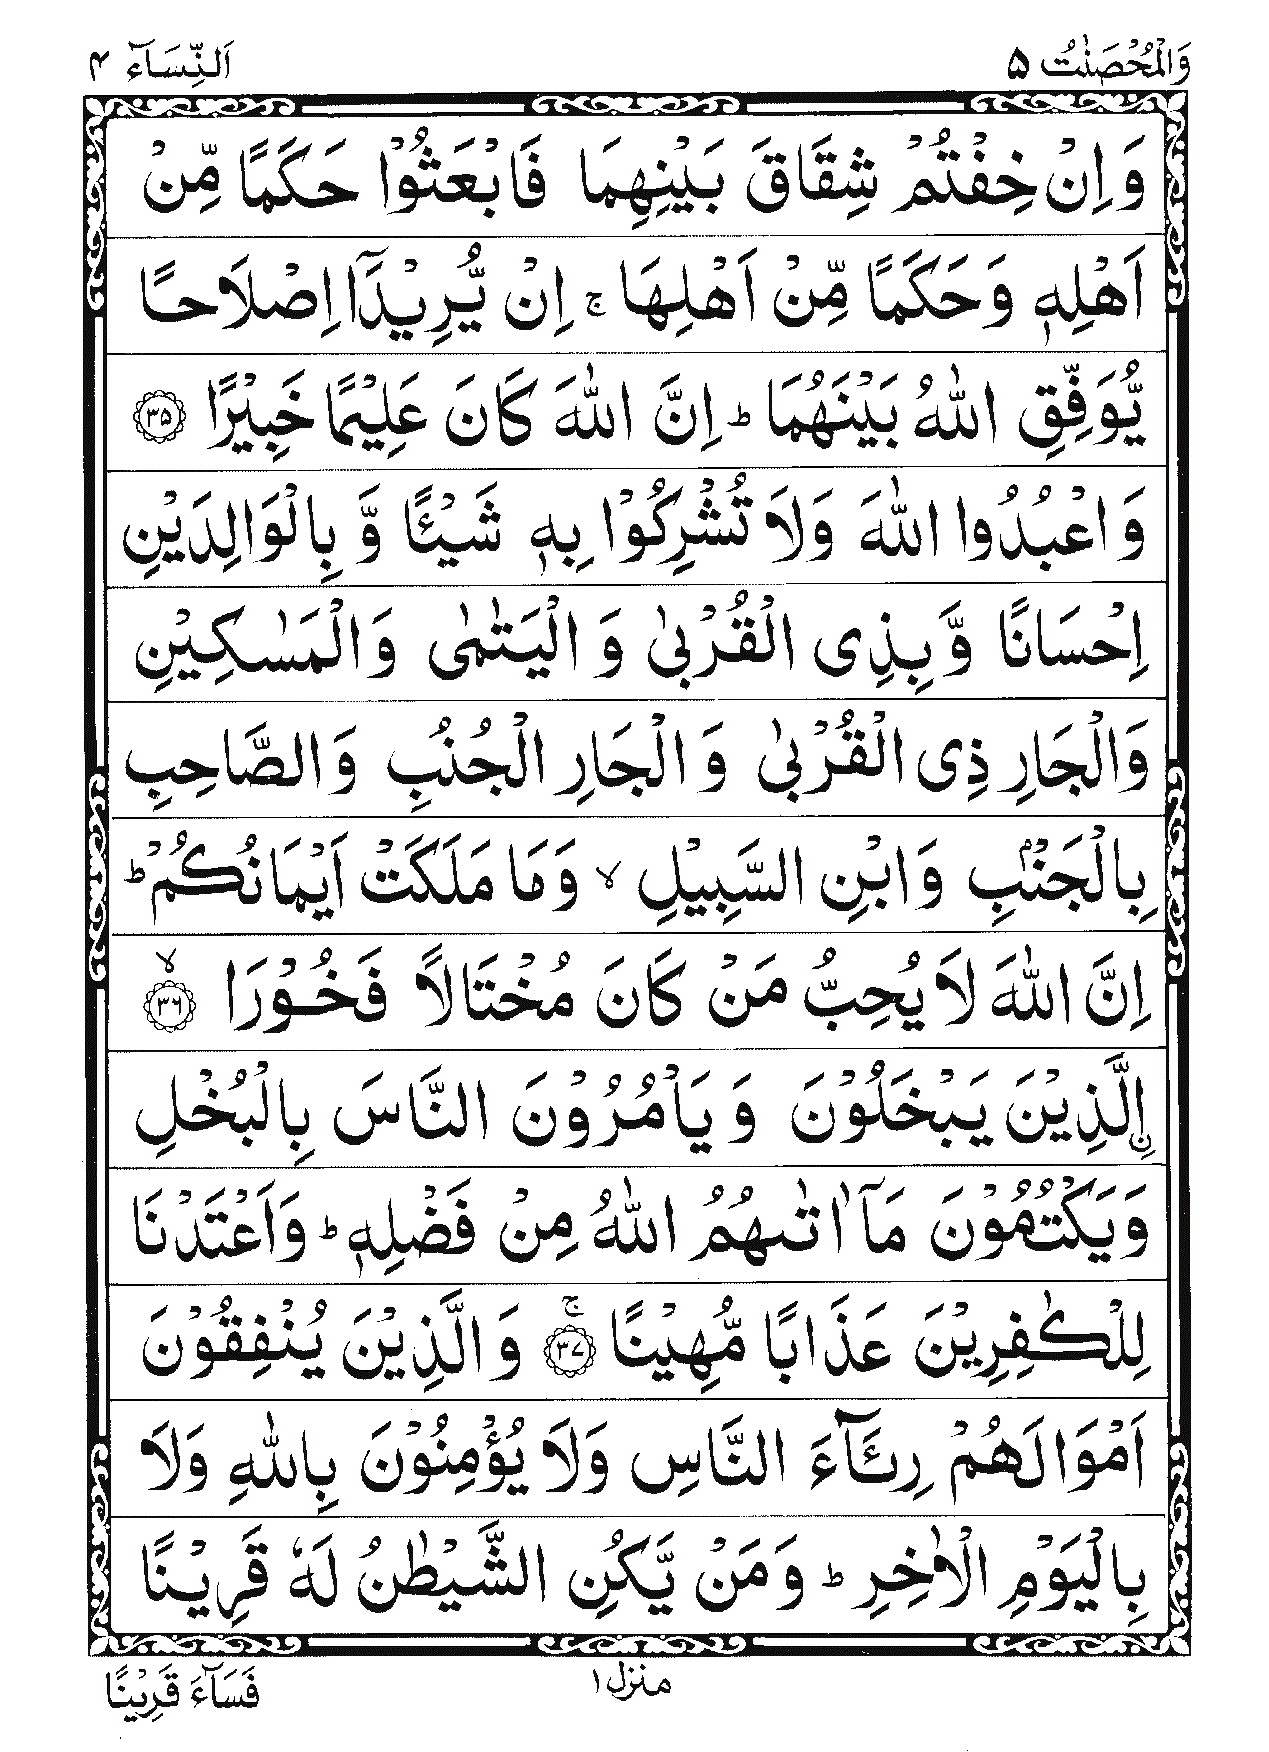 وَالْمُحْصَنٰتُ ۵
اَلنِّسَآء ۴
وَاِنْ خِفْتُمْ شِقَاقَ بَيْنِهِمَا فَابْعَثُوْا حَكَمًا مِّنْ
اَهْلِهٖ وَحَكَمًا مِّنْ اَهْلِهَا ۚ اِنْ يُّرِيْدَآ اِصْلَاحًا
يُّوَفِّقِ اللّٰهُ بَيْنَهُمَا ؕ اِنَّ اللّٰهَ كَانَ عَلِيْمًا خَبِيْرًا ﴿۳۵﴾
وَاعْبُدُوا اللّٰهَ وَلَا تُشْرِكُوْا بِهٖ شَيْـًٔا وَّ بِالْوَالِدَيْنِ
اِحْسَانًا وَّبِذِی الْقُرْبٰى وَالْيَتٰمٰى وَالْمَسٰكِيْنِ
وَالْجَارِ ذِی الْقُرْبٰى وَالْجَارِ الْجُنُبِ وَالصَّاحِبِ
بِالْجَنْۢبِ وَابْنِ السَّبِيْلِ ۙ وَمَا مَلَكَتْ اَيْمَانُكُمْ ؕ
اِنَّ اللّٰهَ لَا يُحِبُّ مَنْ كَانَ مُخْتَالًا فَخُوْرَا ﴿۳۶﴾ ۙ
اۨلَّذِيْنَ يَبْخَلُوْنَ وَيَاْمُرُوْنَ النَّاسَ بِالْبُخْلِ
وَيَكْتُمُوْنَ مَآ اٰتٰىهُمُ اللّٰهُ مِنْ فَضْلِهٖ ؕ وَاَعْتَدْنَا
لِلْكٰفِرِيْنَ عَذَابًا مُّهِيْنًا ﴿۳۷﴾ ۚ وَالَّذِيْنَ يُنْفِقُوْنَ
اَمْوَالَهُمْ رِئَآءَ النَّاسِ وَلَا يُؤْمِنُوْنَ بِاللّٰهِ وَلَا
بِالْيَوْمِ الْاٰخِرِ ؕ وَمَنْ يَّكُنِ الشَّيْطٰنُ لَهٗ قَرِيْنًا
منزل ۱
فَسَآءَ قَرِيْنًا